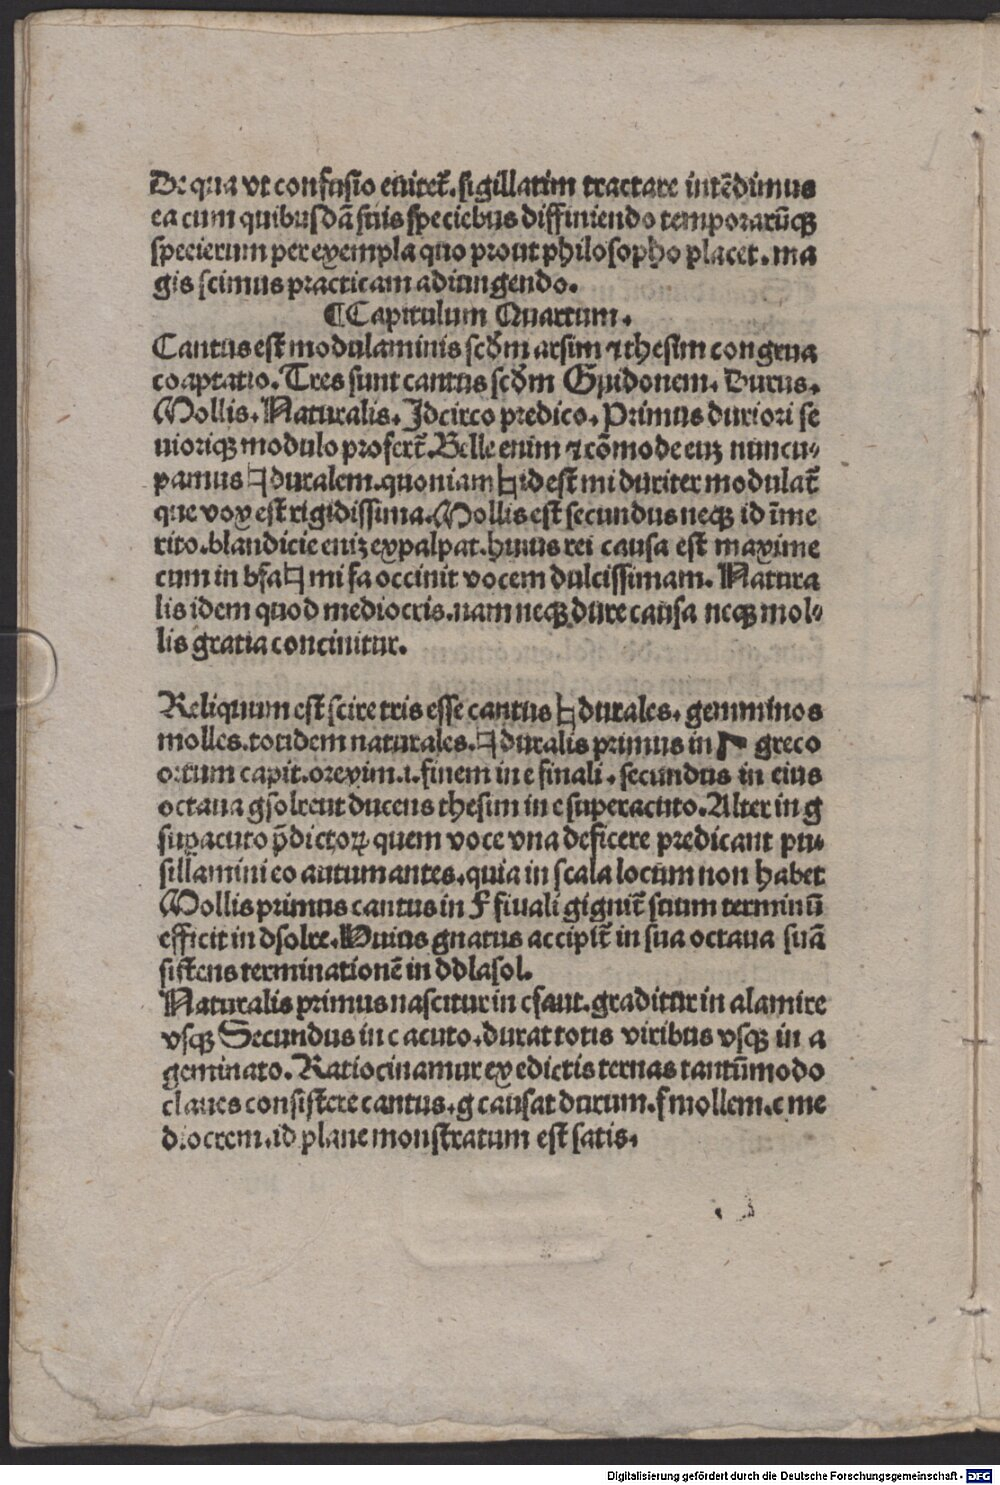 De qua vt confusio euitet̄. sigillatim tractare intēdimus
ea cum quibusdā suis speciebus diffiniendo temporarūqꝫ
specierum per exempla quo prout philosopho placet. ma
gis scimus practicam adiungendo.
¶Capitulum Quartum.
Cantus est modulaminis scd̄m arsim ⁊ thesim congrua
coaptatio. Tres sunt cantus scd̄m Gwidonem. Durus.
Mollis. Naturalis. Idcirco predico. Primus duriori se
uioriqꝫ modulo profert̄. Belle enim ⁊ cōmode euꝫ nuncu-
pamus ♮duralem. quoniam ♮ id est mi duriter modulat̄
que vox est rigidissima. Mollis est secundus neqꝫ id īme
rito. blandicie eniꝫ expalpat. huius rei causa est maxime
cum in bfa♮mi fa occinit vocem dulcissimam. Natura
lis idem quod mediocris. nam neqꝫ dure causa neqꝫ mol-
lis gratia concinitur.
Reliquum est scire tris esse cantus ♮durales. gemminos
molles. totidem naturales. ♮duralis primus in Γ greco
ortum capit. orexim .i. finem in e finali. secundus in eius
octaua gsolreut ducens thesim in e superacuto. Alter in g
suꝑacuto p̄dictoꝝ quem voce vna deficere predicant pu-
sillamini eo autumantes. quia in scala locum non habet
Mollis primus cantus in F finali gignit̄ suum terminū
efficit in dsolre. Huius gnatus accipit̄ in sua octaua suā
sistens terminationē in ddlasol.
Naturalis primus nascitur in cfaut. graditur in alamire
vsqꝫ Secundus in c acuto. durat totis viribus vsqꝫ in a
geminato. Ratiocinamur ex edictis ternas tantūmodo
claues consistere cantus. g causat durum. f mollem. c me
diocrem. id plane monstratum est satis.
Digitalisierung gefördert durch die Deutsche Forschungsgemeinschaft - DFG